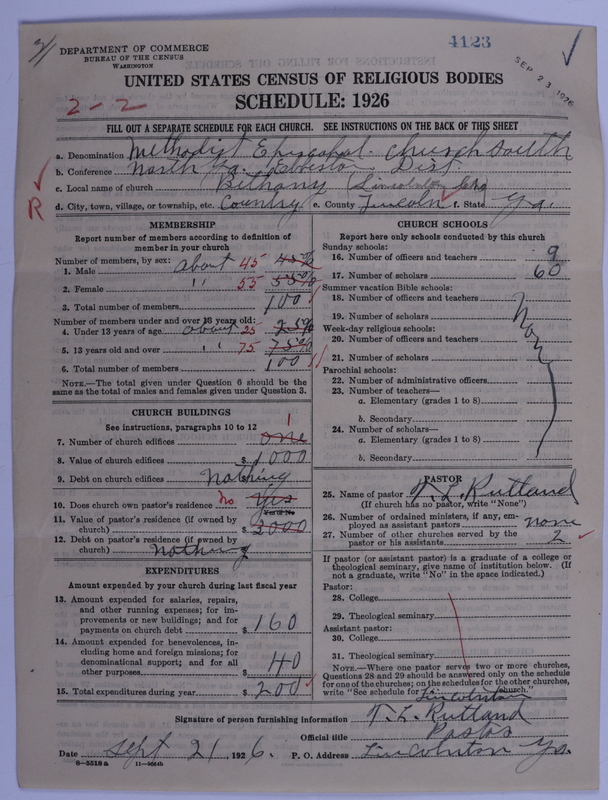 4123
DEPARTMENT OF COMMERCE
BUREAU OF THE CENSUS
WASHINGTON
SEP 23 1926
UNITED STATES CENSUS OF RELIGIOUS BODIES
2-2
SCHEDULE: 1926
FILL OUT A SEPARATE SCHEDULE FOR EACH CHURCH. SEE INSTRUCTIONS ON THE BACK OF THIS SHEET
a. Denomination Methodist Episcopal Church South
b. Conference North Ga. Elberton Dist.
c. Local name of church Bethany (Lincolnton Chg
R
d. City, town, village, or township, etc. Country e. County Lincoln f. State Ga.
MEMBERSHIP
Report number of members according to definition of
member in your church
Number of members, by sex:
1. Male about 45 45%
2. Female " 55 55%
3. Total number of members 100
Number of members under and over 13 years old:
4. Under 13 years of age about 25 25%
5. 13 years old and over " 75 75%
6. Total number of members 100
NOTE.—The total given under Question 6 should be the
same as the total of males and females given under Question 3.
CHURCH BUILDINGS
See instructions, paragraphs 10 to 12
7. Number of church edifices one 1
8. Value of church edifices $ 1000
9. Debt on church edifices $ nothing
10. Does church own pastor's residence no Yes
Yes or No
11. Value of pastor's residence (if owned by
church) $ 2000
12. Debt on pastor's residence (if owned by
church) nothing
EXPENDITURES
Amount expended by your church during last fiscal year
13. Amount expended for salaries, repairs,
and other running expenses; for im-
provements or new buildings; and for
payments on church debt $ 160
14. Amount expended for benevolences, in-
cluding home and foreign missions; for
denominational support; and for all
other purposes $ 40
15. Total expenditures during year $ 200
CHURCH SCHOOLS
Report here only schools conducted by this church
Sunday schools:
16. Number of officers and teachers 9
17. Number of scholars 60
Summer vacation Bible schools:
18. Number of officers and teachers
19. Number of scholars
Week-day religious schools:
20. Number of officers and teachers
21. Number of scholars
Parochial schools:
22. Number of administrative officers
23. Number of teachers—
a. Elementary (grades 1 to 8)
b. Secondary
24. Number of scholars—
a. Elementary (grades 1 to 8)
b. Secondary
PASTOR
25. Name of pastor T. L. Rutland
(If church has no pastor, write "None")
26. Number of ordained ministers, if any, em-
ployed as assistant pastors none
27. Number of other churches served by the
pastor or his assistants 2
If pastor (or assistant pastor) is a graduate of a college or
theological seminary, give name of institution below. (If
not a graduate, write "No" in the space indicated.)
Pastor:
28. College
29. Theological seminary
Assistant pastor:
30. College
31. Theological seminary
NOTE.—Where one pastor serves two or more churches,
Questions 28 and 29 should be answered only on the schedule
for one of the churches; on the schedules for the other churches,
write "See schedule for Lincolnton church."
Signature of person furnishing information T. L. Rutland
Official title Pastor
Date Sept 21, 1926. P. O. Address Lincolnton Ga.
8—5518a 11—9664b